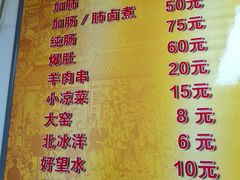 加肺 50元
加肠/肺卤煮 75元
纯肠 60元
爆肚 20元
羊肉串 15元
小凉菜 8元
大窑 6元
北冰洋 10元
好望水